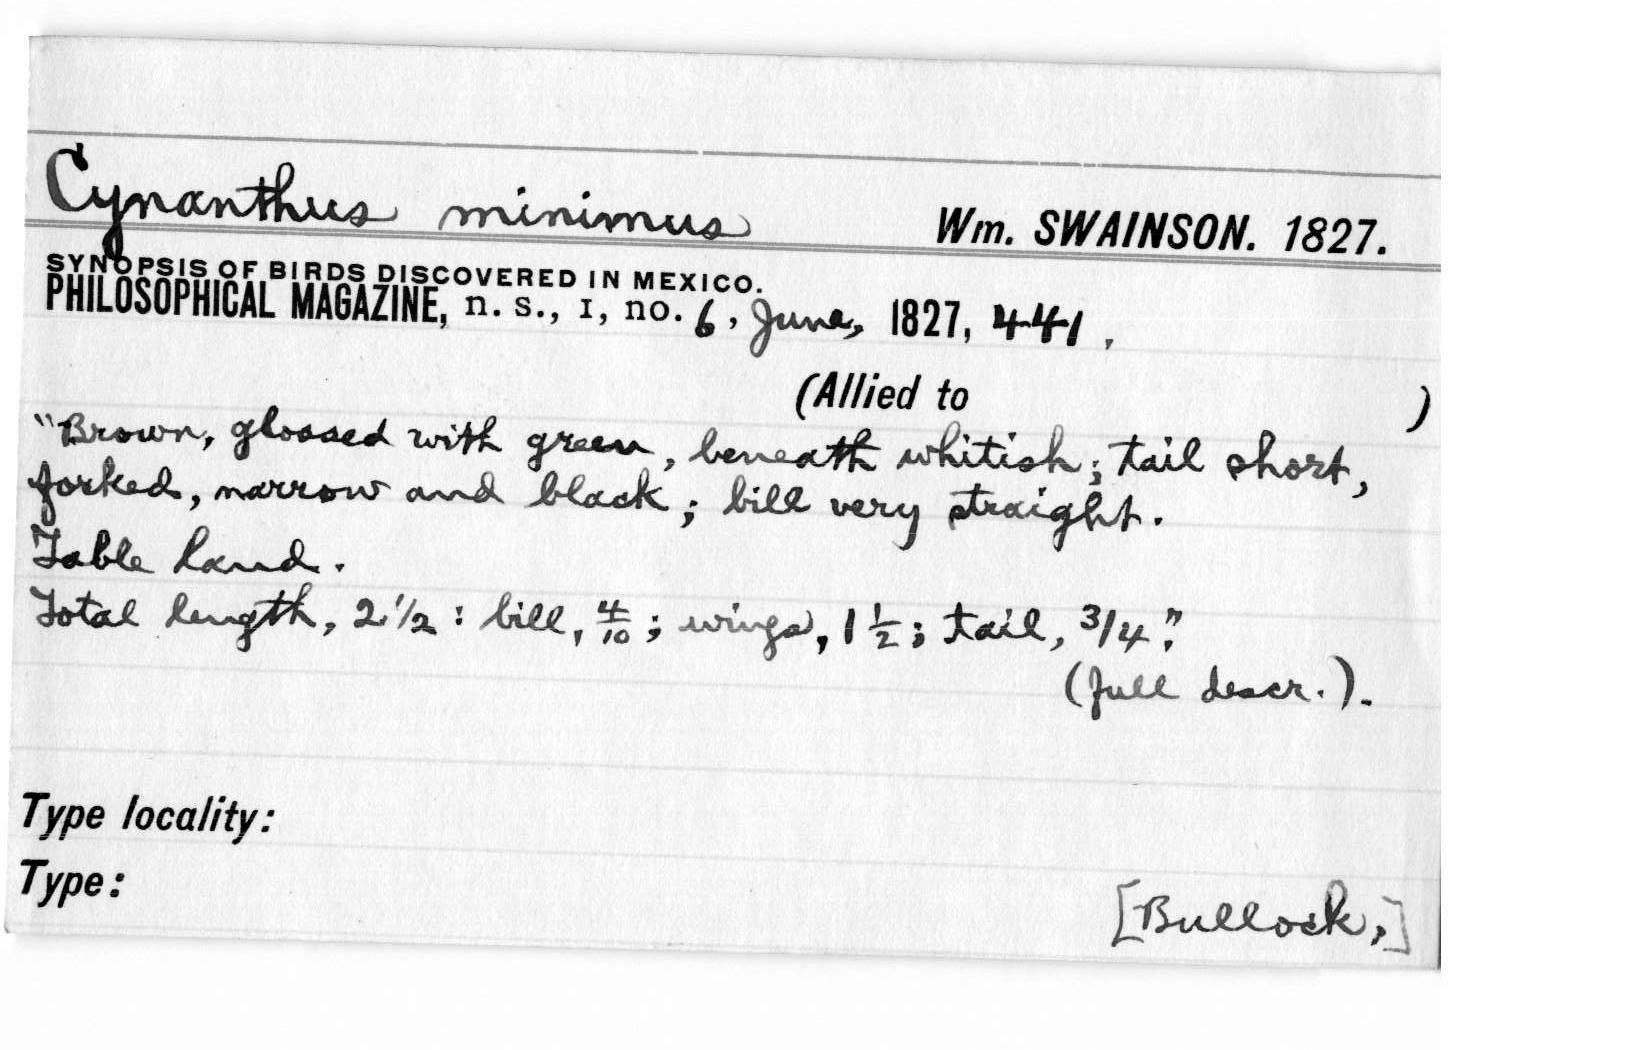 Cynanthus minimus Wm. SWAINSON. 1827.
SYNOPSIS OF BIRDS DISCOVERED IN MEXICO.
PHILOSOPHICAL MAGAZINE, n. s., I, no. 6, June, 1827, 441.
(Allied to )
"Brown, glossed with green, beneath whitish; tail short,
forked, narrow and black; bill very straight.
Table land.
Total length, 2 1/2 : bill, 4/10 ; wings, 1 1/2 ; tail, 3/4".
(full descr.).
Type locality:
Type:
[Bullock,]